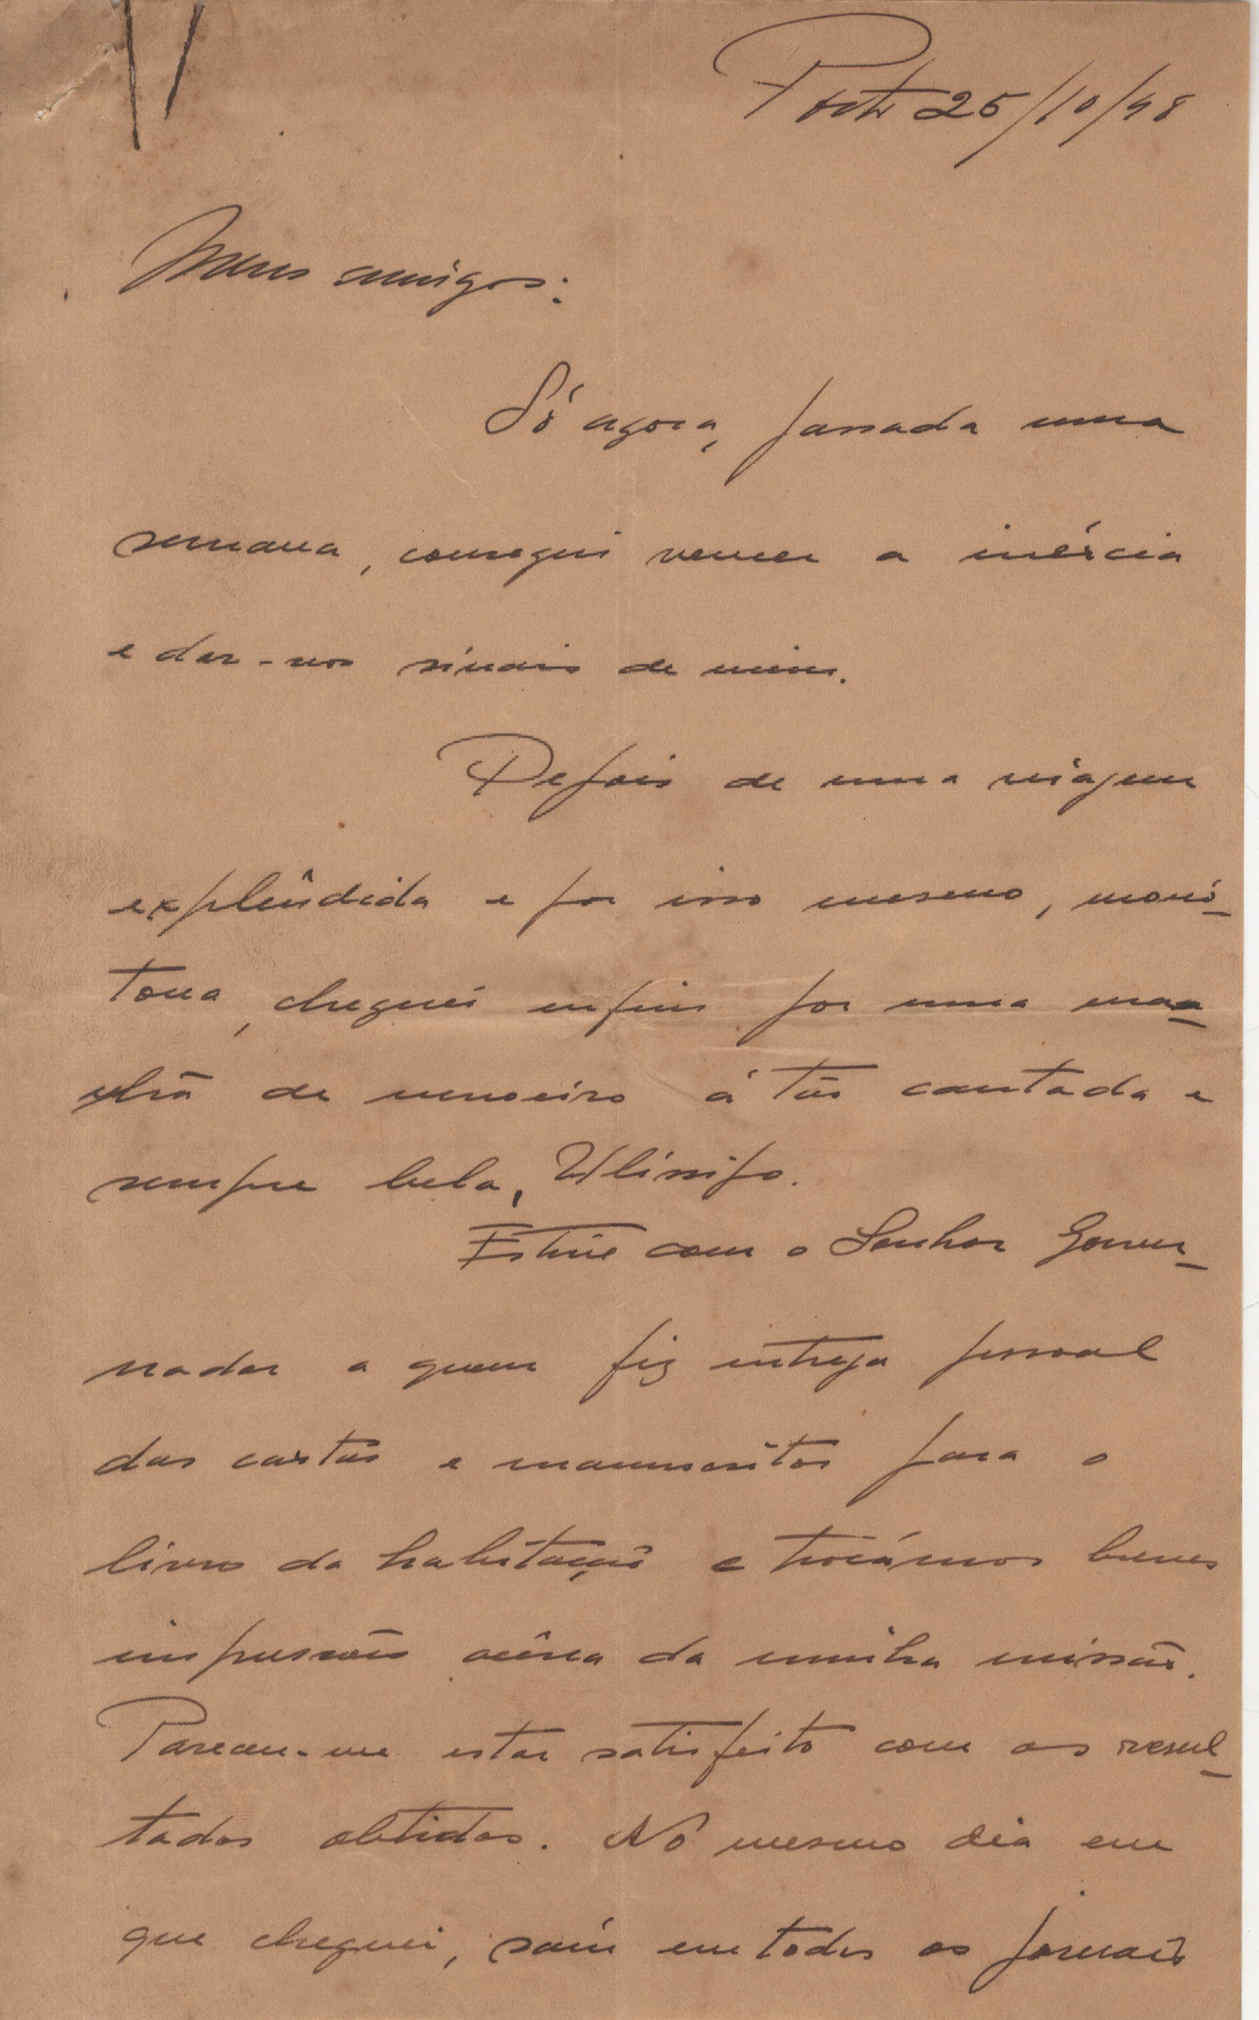 Porto 25/10/48
Meus amigos:
Só agora, passada uma
semana, consegui vencer a inércia
e dar-vos sinais de mim.
Depois de uma viagem
explêndida e por isso mesmo, monó-
tona, cheguei enfim por uma ma-
nhã de nevoeiro á tão cantada e
sempre bela, Ulissipo.
Estive com o Senhor Gover-
nador a quem fiz entrega pessoal
das cartas e manuscritos para o
livro da habitação e trocámos breves
impressões acêrca da minha missão.
Pareceu-me estar satisfeito com os resul-
tados obtidos. No mesmo dia em
que cheguei, saíu em todos os jornais